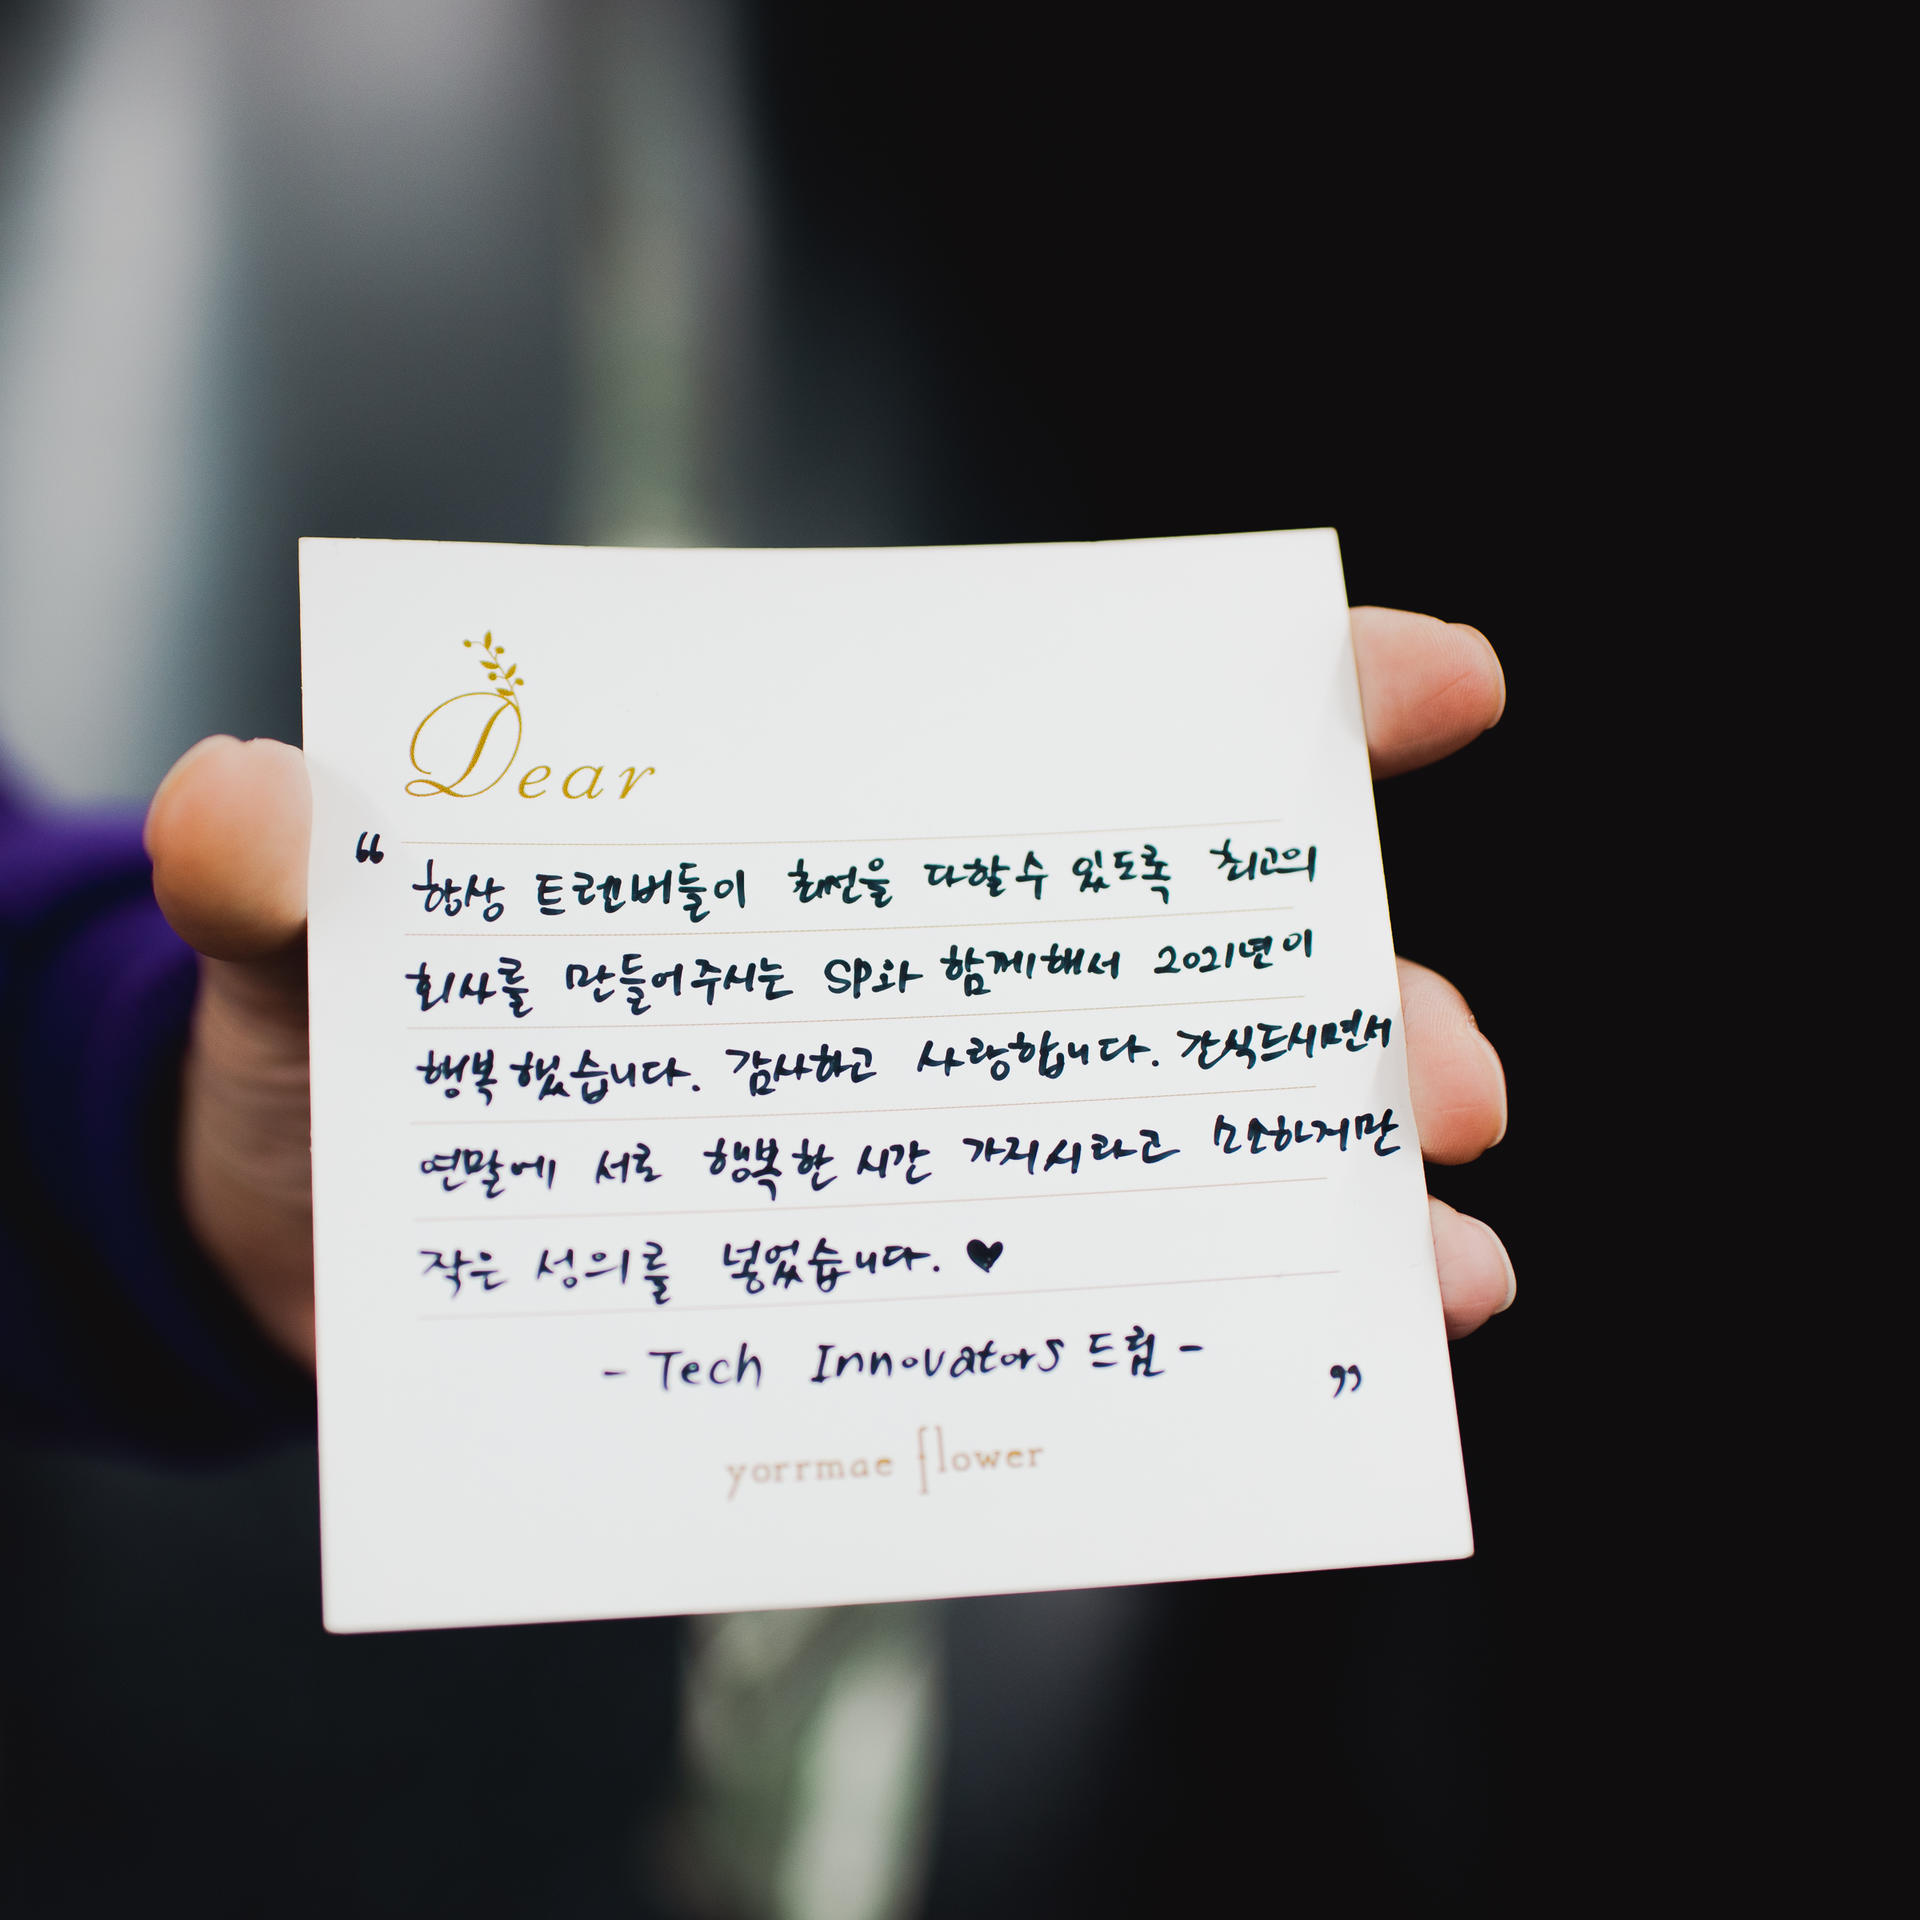 Dear
“ 항상 트렌버들이 최선을 다할 수 있도록 최고의
회사를 만들어주시는 SP와 함께해서 2021년이
행복했습니다. 감사하고 사랑합니다. 간식드시면서
연말에 서로 행복한 시간 가지시라고 소소하지만
작은 성의를 넣었습니다. ♥
- Tech Innovators 드림 - ”
yorrmae flower